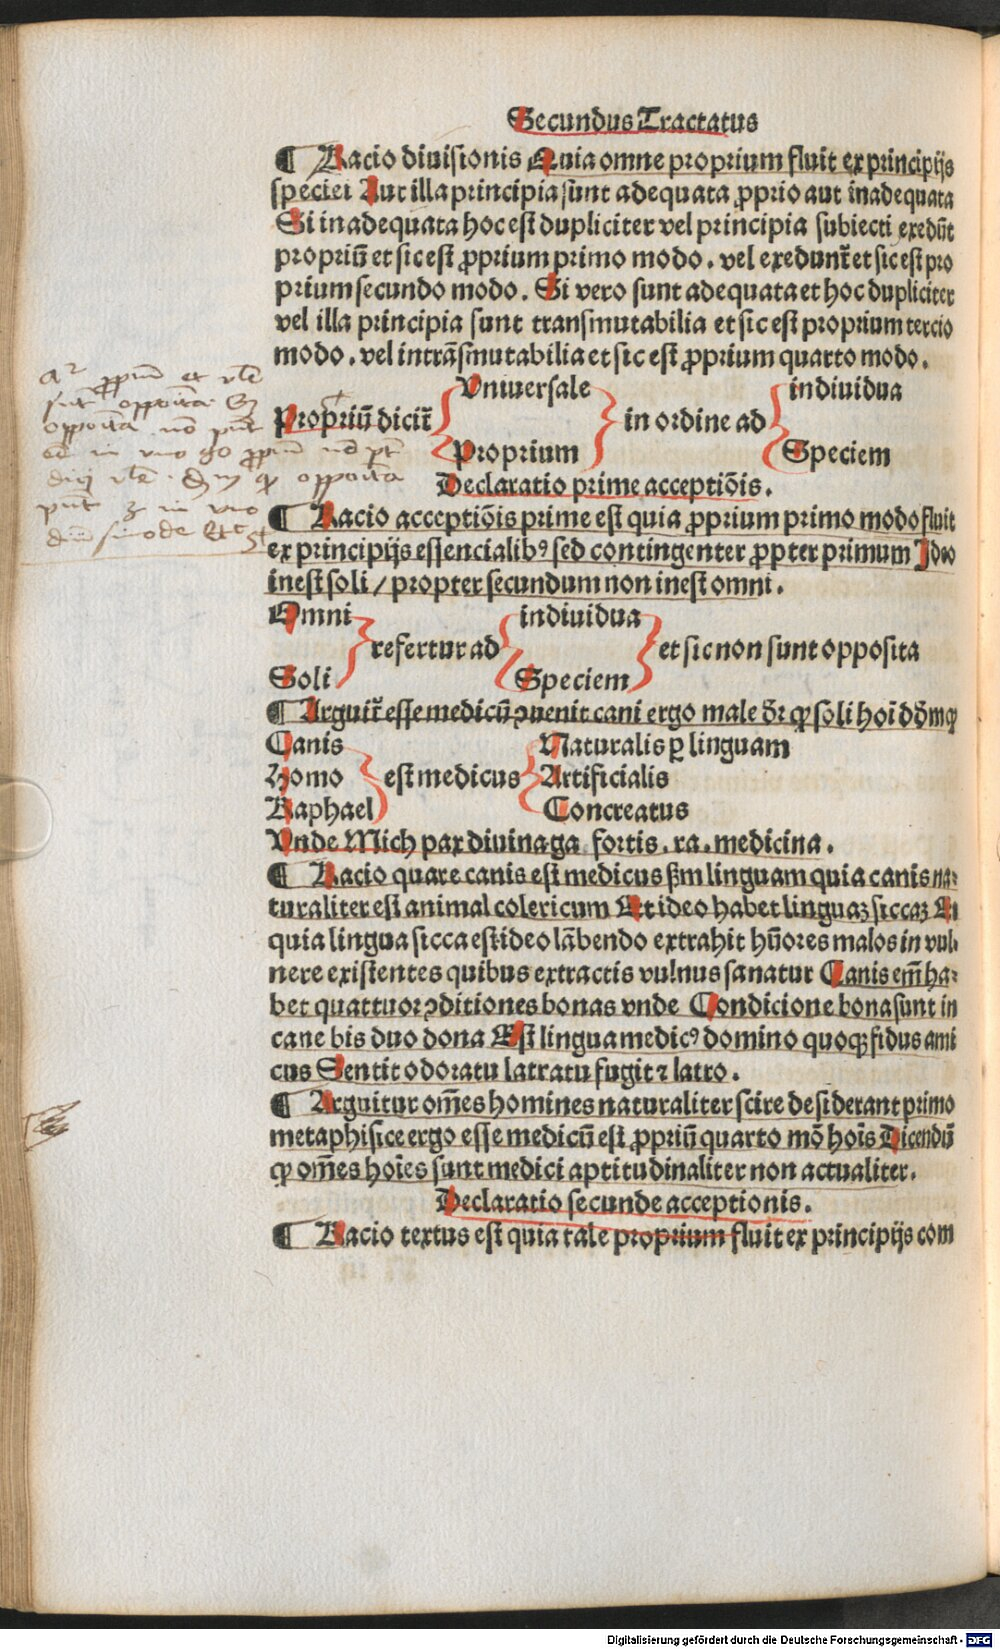 Secundus Tractatus
¶ Racio diuisionis Quia omne proprium fluit ex principijs
speciei Aut illa principia sunt adequata ꝓprio aut inadequata
Si inadequata hoc est dupliciter vel principia subiecti exedūt
propriū et sic est ꝓprium primo modo. vel exedunt̄ et sic est pro
prium secundo modo. Si vero sunt adequata et hoc dupliciter
vel illa principia sunt transmutabilia et sic est proprium tercio
modo. vel intrāsmutabilia et sic est ꝓprium quarto modo.
Vniuersale indiuidua
Propriū dicit̄ in ordine ad
Proprium Speciem
Declaratio prime acceptiōis.
¶ Racio acceptiōis prime est quia ꝓprium primo modo fluit
ex principijs essencialibꝰ sed contingenter ꝓpter primum Ideo
inest soli / propter secundum non inest omni.
Omni indiuidua
refertur ad et sic non sunt opposita
Soli Speciem
¶ Arguit̄ esse medicū ꝯuenit cani ergo male dr̄ ꝙ soli hoī dd̄mꝙ
Canis Naturalis ꝑ linguam
Homo est medicus Artificialis
Raphael Concreatus
Vnde Mich pax diuina ga. fortis. ra. medicina.
¶ Racio quare canis est medicus ẜm linguam quia canis na⸗
turaliter est animal colericum Et ideo habet linguaꝫ siccaꝫ Et
quia lingua sicca est ideo lābendo extrahit hūores malos in vul⸗
nere existentes quibus extractis vulnus sanatur Canis em̄ ha⸗
bet quattuor ꝯditiones bonas vnde Condicione bona sunt in
cane bis duo dona Est lingua medicꝰ domino quoqꝫ fidus ami
cus Sentit odoratu latratu fugit ⁊ latro.
¶ Arguitur om̄es homines naturaliter scire desiderant primo
metaphisice ergo esse medicū est ꝓpriū quarto mō hoīs Dicendū
ꝙ om̄es hoīes sunt medici aptitudinaliter non actualiter.
Declaratio secunde acceptionis.
¶ Racio textus est quia tale proprium fluit ex principijs com
Digitalisierung gefördert durch die Deutsche Forschungsgemeinschaft - DFG